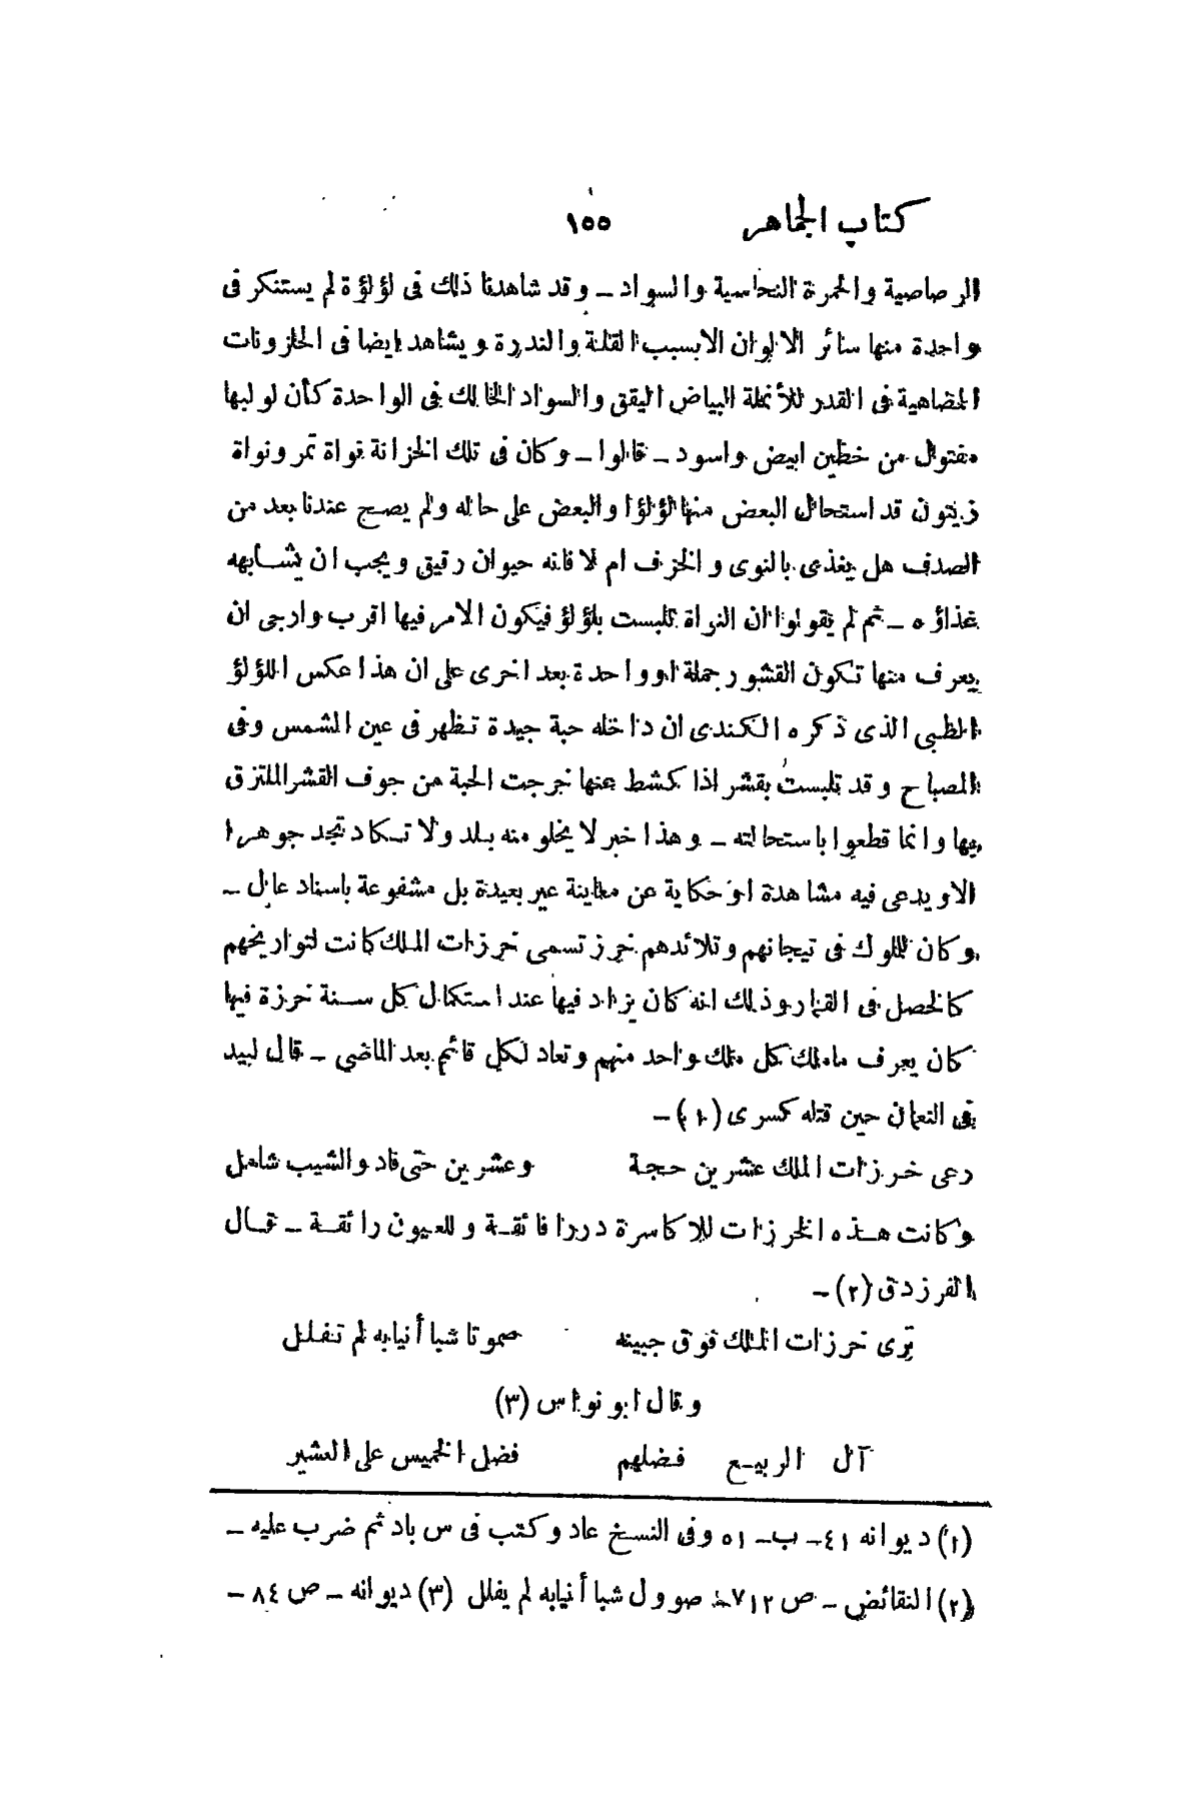 كتاب الجماهر ١٥٥
الرصاصية والحمرة النحاسية والسواد ـ وقد شاهدنا ذلك فى لؤلؤة لم يستنكر فى
واحدة منها سائر الالوان الا بسبب القلة والندرة ويشاهد ايضا فى الحلزونات
المضاهية فى القدر للأنملة البياض اليقق والسواد الحالك فى الواحدة كأن لولبها
مفتول من خطين ابيض واسود ـ قالوا ـ وكان فى تلك الخزانة نواة تمر ونواة
زيتون قد استحال البعض منها لؤلؤا والبعض على حاله ولم يصح عندنا بعد من
الصدف هل يغذى بالنوى والخزف ام لا فانه حيوان رقيق ويجب ان يشابهه
غذاؤه ـ ثم لم يقولوا ان النواة تلبست بلؤلؤ فيكون الامر فيها اقرب وارجى ان
يعرف منها تكون القشور جملة او واحدة بعد اخرى على ان هذا عكس اللؤلؤ
الطبى الذى ذكره الكندى ان داخله حبة جيدة تظهر فى عين الشمس وفى
المصباح وقد تلبست بقشر اذا كشط عنها خرجت الحبة من جوف القشر الملتزق
بها وانما قطعوا باستحالته ـ وهذا خبر لا يخلو منه بلد ولا تكاد تجد جوهرا
الا ويدعى فيه مشاهدة او حكاية عن معاينة غير بعيدة بل مشفوعة باسناد عال ـ
وكان للملوك فى تيجانهم وقلائدهم خرز تسمى خرزات الملك كانت لتواريخهم
كالخصل فى القمار وذلك انه كان يزاد فيها عند استكمال كل سنة خرزة فيها
كان يعرف ما ملك كل ملك واحد منهم وتعاد لكل قائم بعد الماضى ـ قال لبيد
فى النعمان حين قتله كسرى (١) ـ
رعى خرزات الملك عشرين حجة وعشرين حتى فاد والشيب شامل
وكانت هذه الخرزات للاكاسرة دررا فائقة وللعيون رائقة ـ قال
الفرزدق (٢) ـ
ترى خرزات الملك فوق جبينه صموتا شبا أنيابه لم تفلل
وقال ابو نواس (٣)
آل الربيع فضلهم فضل الخميس على العشير
(١) ديوانه ٤١ ـ ب ـ ٥١ وفى النسخ عاد وكتب فى س باد ثم ضرب عليه ـ
(٢) النقائض ـ ص ٧١٢ صوول شبا أنيابه لم يفلل (٣) ديوانه ـ ص ٨٤ ـ